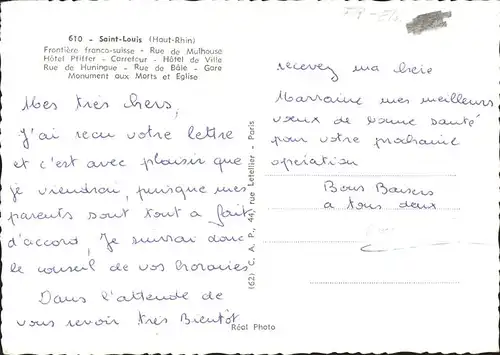 610 - Saint-Louis (Haut-Rhin)
Frontière franco-suisse - Rue de Mulhouse
Hôtel Pfiffer - Carrefour - Hôtel de Ville
Rue de Huningue - Rue de Bâle - Gare
Monument aux Morts et Eglise
Mes très chers,
J'ai reçu votre lettre
et c'est avec plaisir que
je viendrai, puisque mes
parents sont tout a fait
d'accord, Je suivrai donc
le conseil de vos horaires
Dans l'attende de
vous revoir très Bientôt
(62) C. A. P., 44, rue Letellier - Paris
Réal Photo
recevez ma
Marraine mes meilleurs
vœux de bonne santé
pour votre prochaine
opération
Bons Baisers
a tous deux